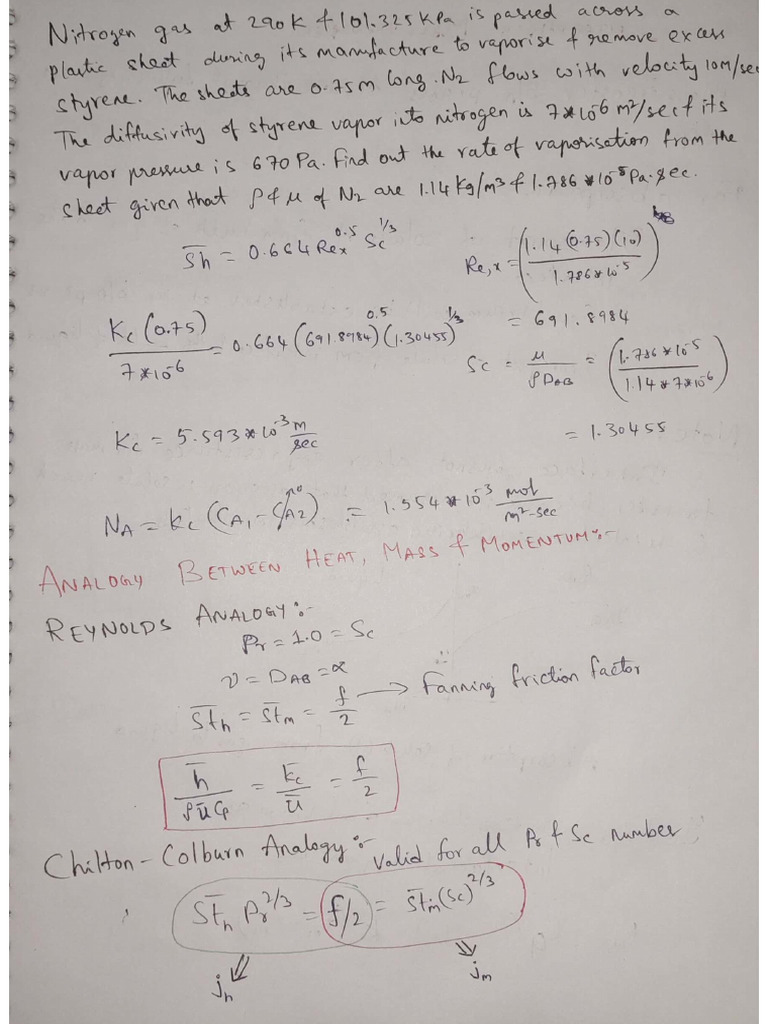 Nitrogen gas at 290K & 101.325KPa is passed across a
plastic sheet during its manufacture to vaporise & remove excess
styrene. The sheets are 0.75m long. N2 flows with velocity 10m/sec
The diffusivity of styrene vapor into nitrogen is 7*10^-6 m²/sec & its
vapor pressure is 670 Pa. Find out the rate of vaporisation from the
sheet given that ρ & μ of N2 are 1.14 kg/m³ & 1.786 * 10^-5 Pa.sec.
Sh̄ = 0.664 Rex^0.5 Sc^1/3
Re,x = (1.14 (0.75)(10) / 1.786*10^-5)
= 691.8984
Kc (0.75) / 7*10^-6 = 0.664 (691.8984)^0.5 (1.30455)^1/3
Sc = μ / ρDAB = (1.786*10^-5 / 1.14*7*10^-6)
= 1.30455
Kc = 5.593*10^-3 m/sec
NA = kc (CA1 - CA2)^0 = 1.554*10^-3 mol/m²-sec
ANALOGY BETWEEN HEAT, MASS & MOMENTUM:-
REYNOLDS ANALOGY:-
Pr = 1.0 = Sc
ν = DAB = α
St̄h = St̄m = f/2 → Fanning friction factor
h̄ / ρūCp = k̄c / ū = f/2
Chilton-Colburn Analogy:- valid for all Pr & Sc number
St̄h Pr^2/3 = f/2 = St̄m (Sc)^2/3
jh
jm